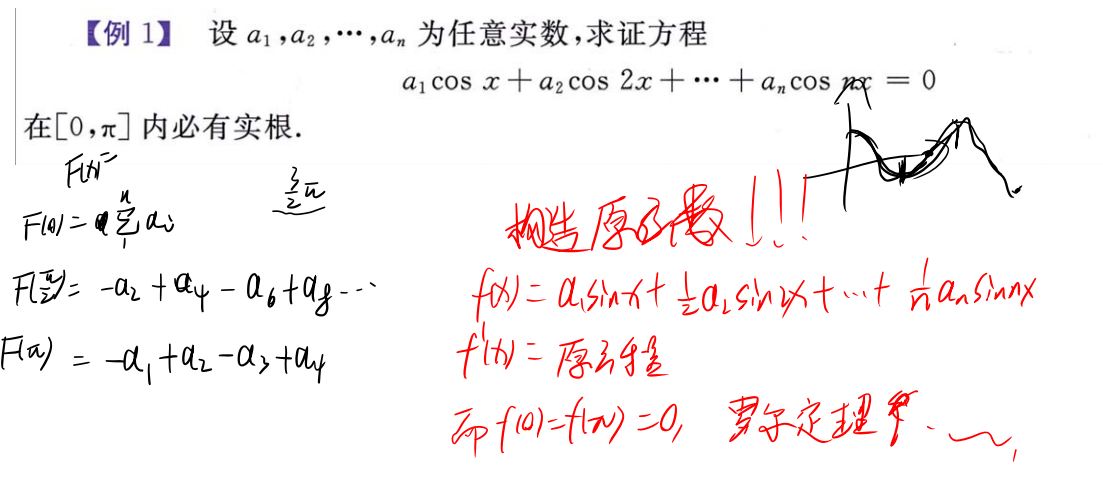 【例1】 设 a₁,a₂,⋯,aₙ 为任意实数,求证方程
a₁cos x＋a₂cos 2x＋⋯＋aₙcos nx ＝ 0
在[0,π]内必有实根.
F(x)=
3/2 π
F(0) = Σ₁ⁿ aᵢ
F(π/2) = -a₂ + a₄ - a₆ + a₈ ⋯
F(π) = -a₁ + a₂ - a₃ + a₄
构造原函数!!!
f(x) = a₁sinx + 1/2 a₂ sin2x + ⋯ + 1/n aₙ sinnx
f'(x) = 原方程
而 f(0)=f(π)=0, 罗尔定理